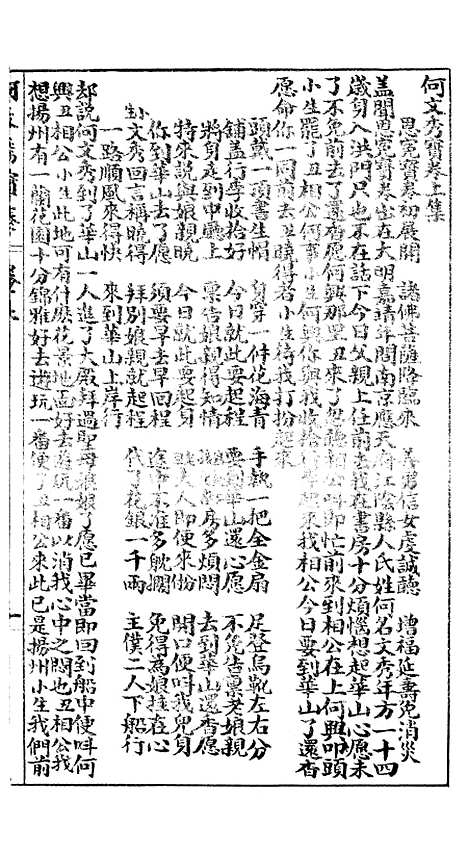 何文秀寶卷上集
恩冤寶卷初展開 諸佛菩薩降臨來 善男信女虔誠聽 增福延壽免消災
蓋聞恩冤寶卷出在大明嘉靖年間南京應天府江陰縣人氏姓何名文秀年方一十四
歲身入洪門只也不在話下今日父親上任前去我在書房十分煩惱想起華山心愿未
了不免前去了還香愿何興那里丑來了忽聽相公叫即忙前來到相公在上何興叩頭
小生罷了丑相公何事小生何興你與我收拾行李起來我相公今日要到華山了還香
愿命你一同前去丑曉得若小生待我打扮起來
頭戴一頂書生帽 身穿一件花海青 手執一把全金扇 足登烏靴左右分
舖蓋行李收拾好 今日就此要起程 要到華山還心愿 不免告稟老娘親
將身走到中廳上 稟告娘親得知情 書房多煩悶 去到華山還香愿
特來說與娘親曉 今日就此要起身 夫人即便來吩 開口便叫我兒身
你到華山去了愿 須要早去早回程 途中不准多躭擱 免得為娘挂在心
文秀回言稱曉得 拜別娘親就起程 代了花銀一千兩 主僕二人下船行
一路順風來得快 來到華山上岸行
却說何文秀到了華山一人進了大殿拜過聖母娘娘了愿已畢當即回到船中便叫何
興丑相公小生此地可有什麼花景地面好去遊玩一番以消我心中之悶也丑相公我
想揚州有一蘭花園十分錦雅好去遊玩一番便了丑相公來此已是揚州小生我們前